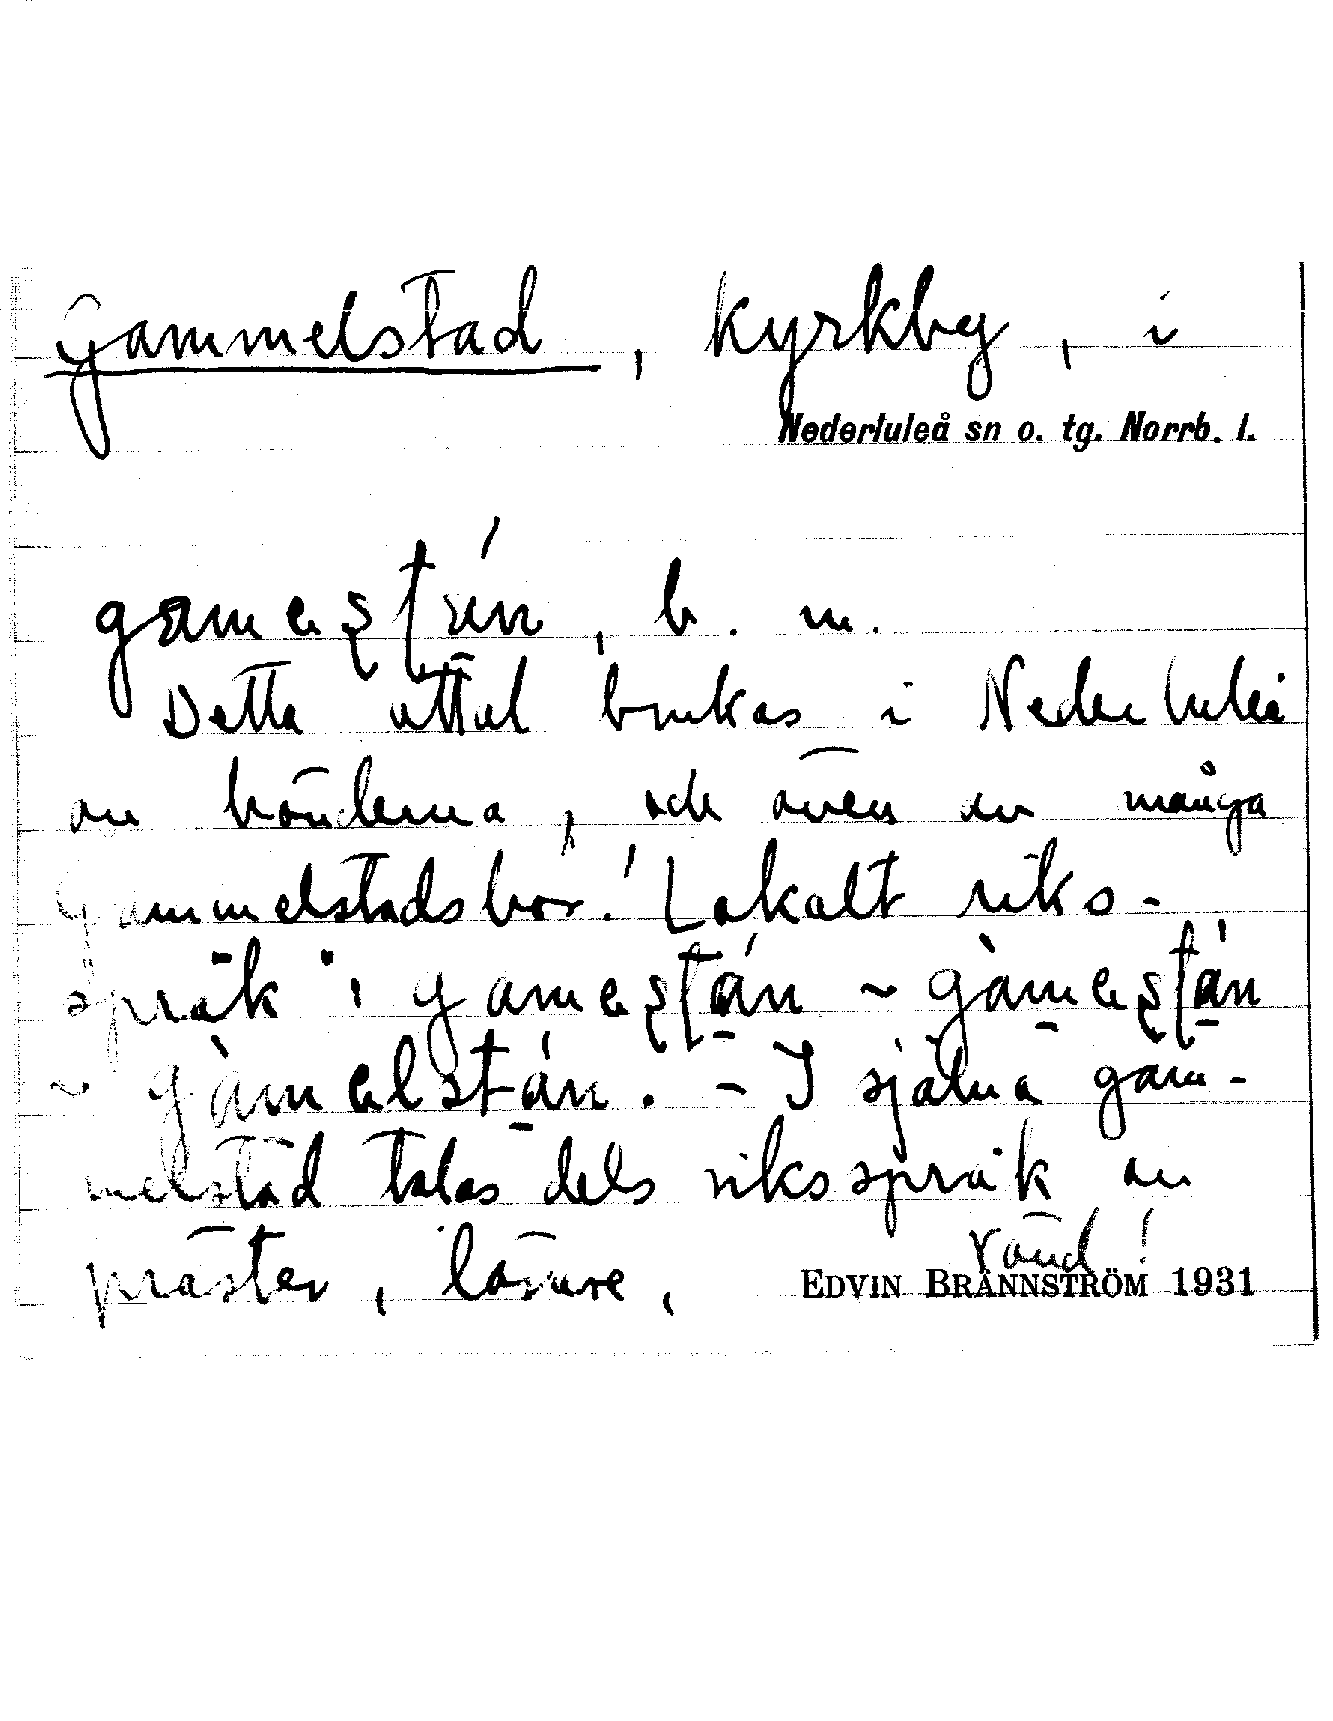 Gammelstad, kyrkby, i
Nederluleå sn o. tg. Norrb. l.
b. m.
Detta uttal brukas i Nederluleå
av bönderna, och även av många
Gammelstadsbor. Lokalt riks-
språk:
~
~ . - I själva Gam-
melstad talas dels riksspråk av
präster, lärare,
Vänd!
EDVIN BRÄNNSTRÖM 1931